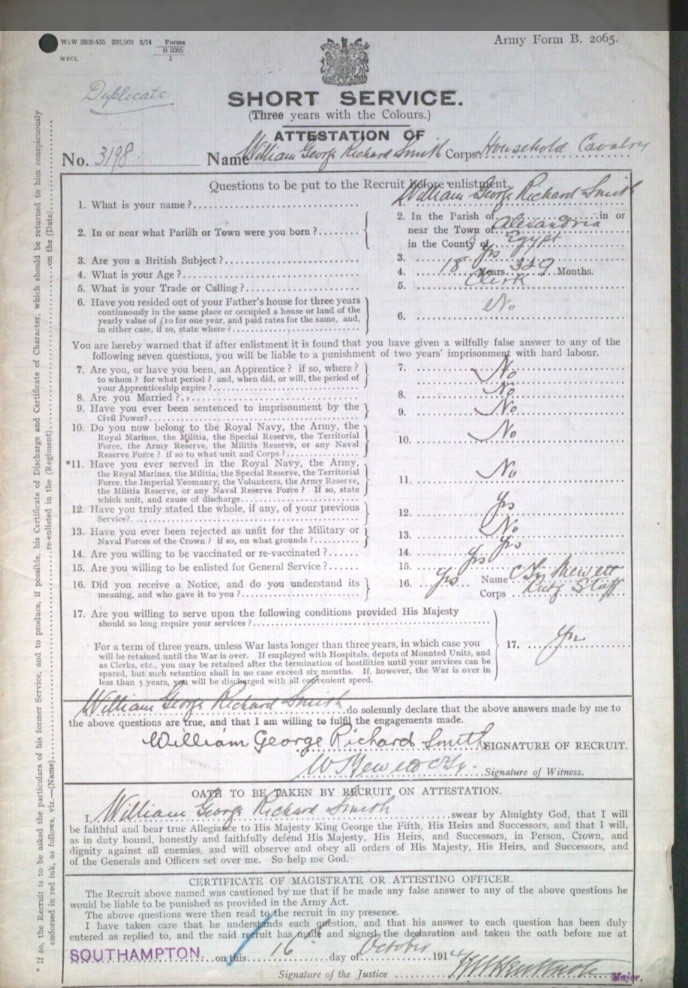 W&W 3808-435 200,000 8/14 Forms
B 2065
1
WPCL
Army Form B. 2065.
Duplicate
SHORT SERVICE.
(Three years with the Colours.)
ATTESTATION OF
No. 3198 Name William George Richard Smith Corps Household Cavalry
Questions to be put to the Recruit before enlistment.
1. What is your name? William George Richard Smith
2. In or near what Parish or Town were you born? 2. In the Parish of in or
near the Town of Alexandria
in the County of Egypt
3. Are you a British Subject? 3. Yes
4. What is your Age? 4. 18 Years 9 Months.
5. What is your Trade or Calling? 5. Clerk
6. Have you resided out of your Father's house for three years
continuously in the same place or occupied a house or land of the
yearly value of £10 for one year, and paid rates for the same, and,
in either case, if so, state where? 6. No
You are hereby warned that if after enlistment it is found that you have given a wilfully false answer to any of the
following seven questions, you will be liable to a punishment of two years' imprisonment with hard labour.
7. Are you, or have you been, an Apprentice? if so, where?
to whom? for what period? and, when did, or will, the period of
your Apprenticeship expire? 7. No
8. Are you Married? 8. No
9. Have you ever been sentenced to imprisonment by the
Civil Power? 9. No
10. Do you now belong to the Royal Navy, the Army, the
Royal Marines, the Militia, the Special Reserve, the Territorial
Force, the Army Reserve, the Militia Reserve, or any Naval
Reserve Force? if so to what unit and Corps? 10. No
*11. Have you ever served in the Royal Navy, the Army,
the Royal Marines, the Militia, the Special Reserve, the Territorial
Force, the Imperial Yeomanry, the Volunteers, the Army Reserve,
the Militia Reserve, or any Naval Reserve Force? If so, state
which unit, and cause of discharge 11. No
12. Have you truly stated the whole, if any, of your previous
Service? 12. Yes
13. Have you ever been rejected as unfit for the Military or
Naval Forces of the Crown? if so, on what grounds? 13. No
14. Are you willing to be vaccinated or re-vaccinated? 14. Yes
15. Are you willing to be enlisted for General Service? 15. Yes
16. Did you receive a Notice, and do you understand its
meaning, and who gave it to you? 16. Yes Name
Corps Staff
17. Are you willing to serve upon the following conditions provided His Majesty
should so long require your services?
For a term of three years, unless War lasts longer than three years, in which case you
will be retained until the War is over. If employed with Hospitals, depots of Mounted Units, and
as Clerks, etc., you may be retained after the termination of hostilities until your services can be
spared, but such retention shall in no case exceed six months. If, however, the War is over in
less than 3 years, you will be discharged with all convenient speed. 17. Yes
William George Richard Smith do solemnly declare that the above answers made by me to
the above questions are true, and that I am willing to fulfil the engagements made.
William George Richard Smith SIGNATURE OF RECRUIT.
Signature of Witness.
OATH TO BE TAKEN BY RECRUIT ON ATTESTATION.
I, William George Richard Smith swear by Almighty God, that I will
be faithful and bear true Allegiance to His Majesty King George the Fifth, His Heirs and Successors, and that I will,
as in duty bound, honestly and faithfully defend His Majesty, His Heirs, and Successors, in Person, Crown, and
dignity against all enemies, and will observe and obey all orders of His Majesty, His Heirs, and Successors, and
of the Generals and Officers set over me. So help me God.
CERTIFICATE OF MAGISTRATE OR ATTESTING OFFICER.
The Recruit above named was cautioned by me that if he made any false answer to any of the above questions he
would be liable to be punished as provided in the Army Act.
The above questions were then read to the recruit in my presence.
I have taken care that he understands each question, and that his answer to each question has been duly
entered as replied to, and the said recruit has made and signed the declaration and taken the oath before me at
SOUTHAMPTON on this 16 day of October 1914
Signature of the Justice Major.
* If so, the Recruit is to be asked the particulars of his former Service, and to produce, if possible, his Certificate of Discharge and Certificate of Character, which should be returned to him conspicuously
endorsed in red ink, as follows, viz.—(Name) re-enlisted in the (Regiment) on the (Date)